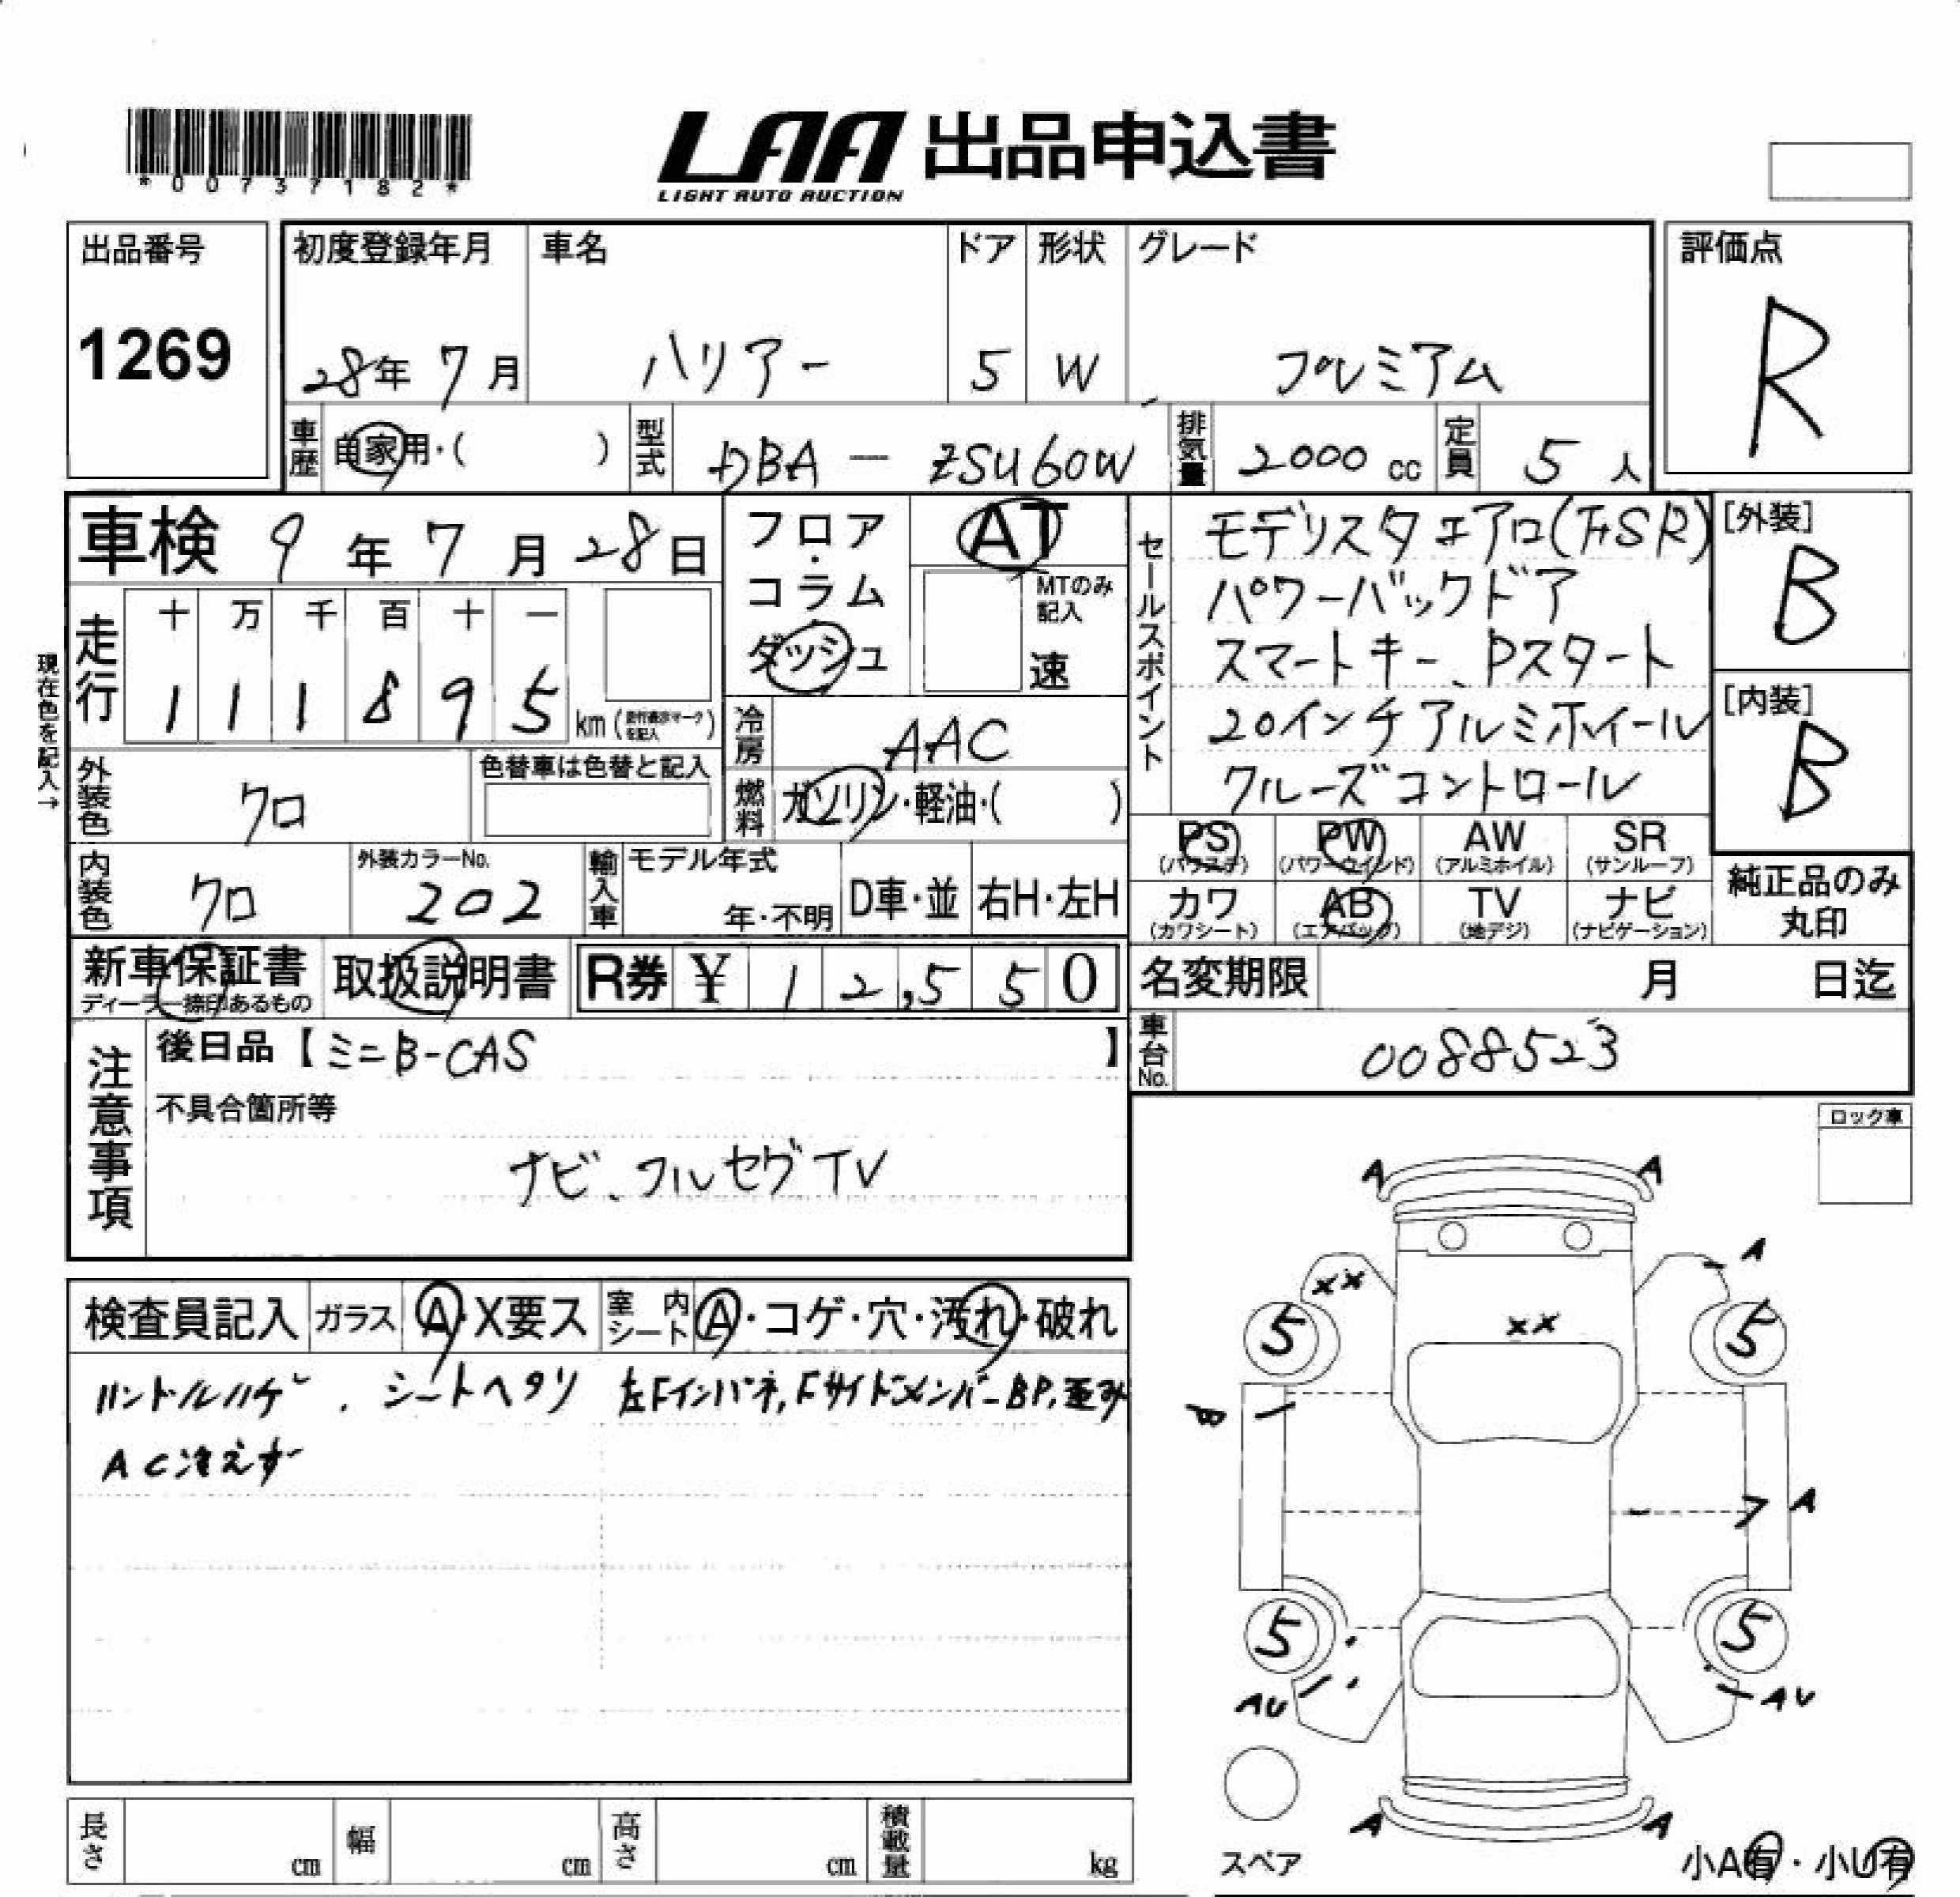 *00737182*
LAA 出品申込書
LIGHT AUTO AUCTION
出品番号
1269
初度登録年月
28年 7月
車名
ハリアー
ドア
5
形状
W
グレード
プレミアム
評価点
R
車歴
自家用・( )
型式
DBA - ZSU60W
排気量
2000 cc
定員
5 人
車検 9年 7月 28日
フロア・コラム
ダッシュ
AT
MTのみ記入
速
セールスポイント
モデリスタエアロ(F.S.R)
パワーバックドア
スマートキー、Pスタート
20インチアルミホイール
クルーズコントロール
[外装]
B
[内装]
B
現在色を記入→
走行
十 万 千 百 十 一
1 1 1 8 9 5
km(走行表示マークを記入)
冷房
AAC
外装色
クロ
色替車は色替と記入
燃料
ガソリン・軽油・( )
PS
(パワステ)
PW
(パワーウインド)
AW
(アルミホイル)
SR
(サンルーフ)
カワ
(カワシート)
AB
(エアバッグ)
TV
(地デジ)
ナビ
(ナビゲーション)
純正品のみ
丸印
内装色
クロ
外装カラーNo.
202
輸入車
モデル年式
年・不明
D車・並
右H・左H
新車保証書
ディーラー捺印あるもの
取扱説明書
R券 ¥ 12,550
名変期限 月 日迄
車台No.
0088523
注意事項
後日品【ミニB-CAS】
不具合箇所等
ナビ、フルセグTV
ロック車
検査員記入
ガラス
A・X要ス
室内シート
A・コゲ・穴・汚れ・破れ
ハンドルハゲ、シートヘタリ 左Fインパネ,FサイドメンバーBP,歪み
AC冷えず
A A
A
XX
XX
5 5
B
A
5 5
AU AU
A A
スペア
小A有・小U有
長さ cm
幅 cm
高さ cm
積載量 kg